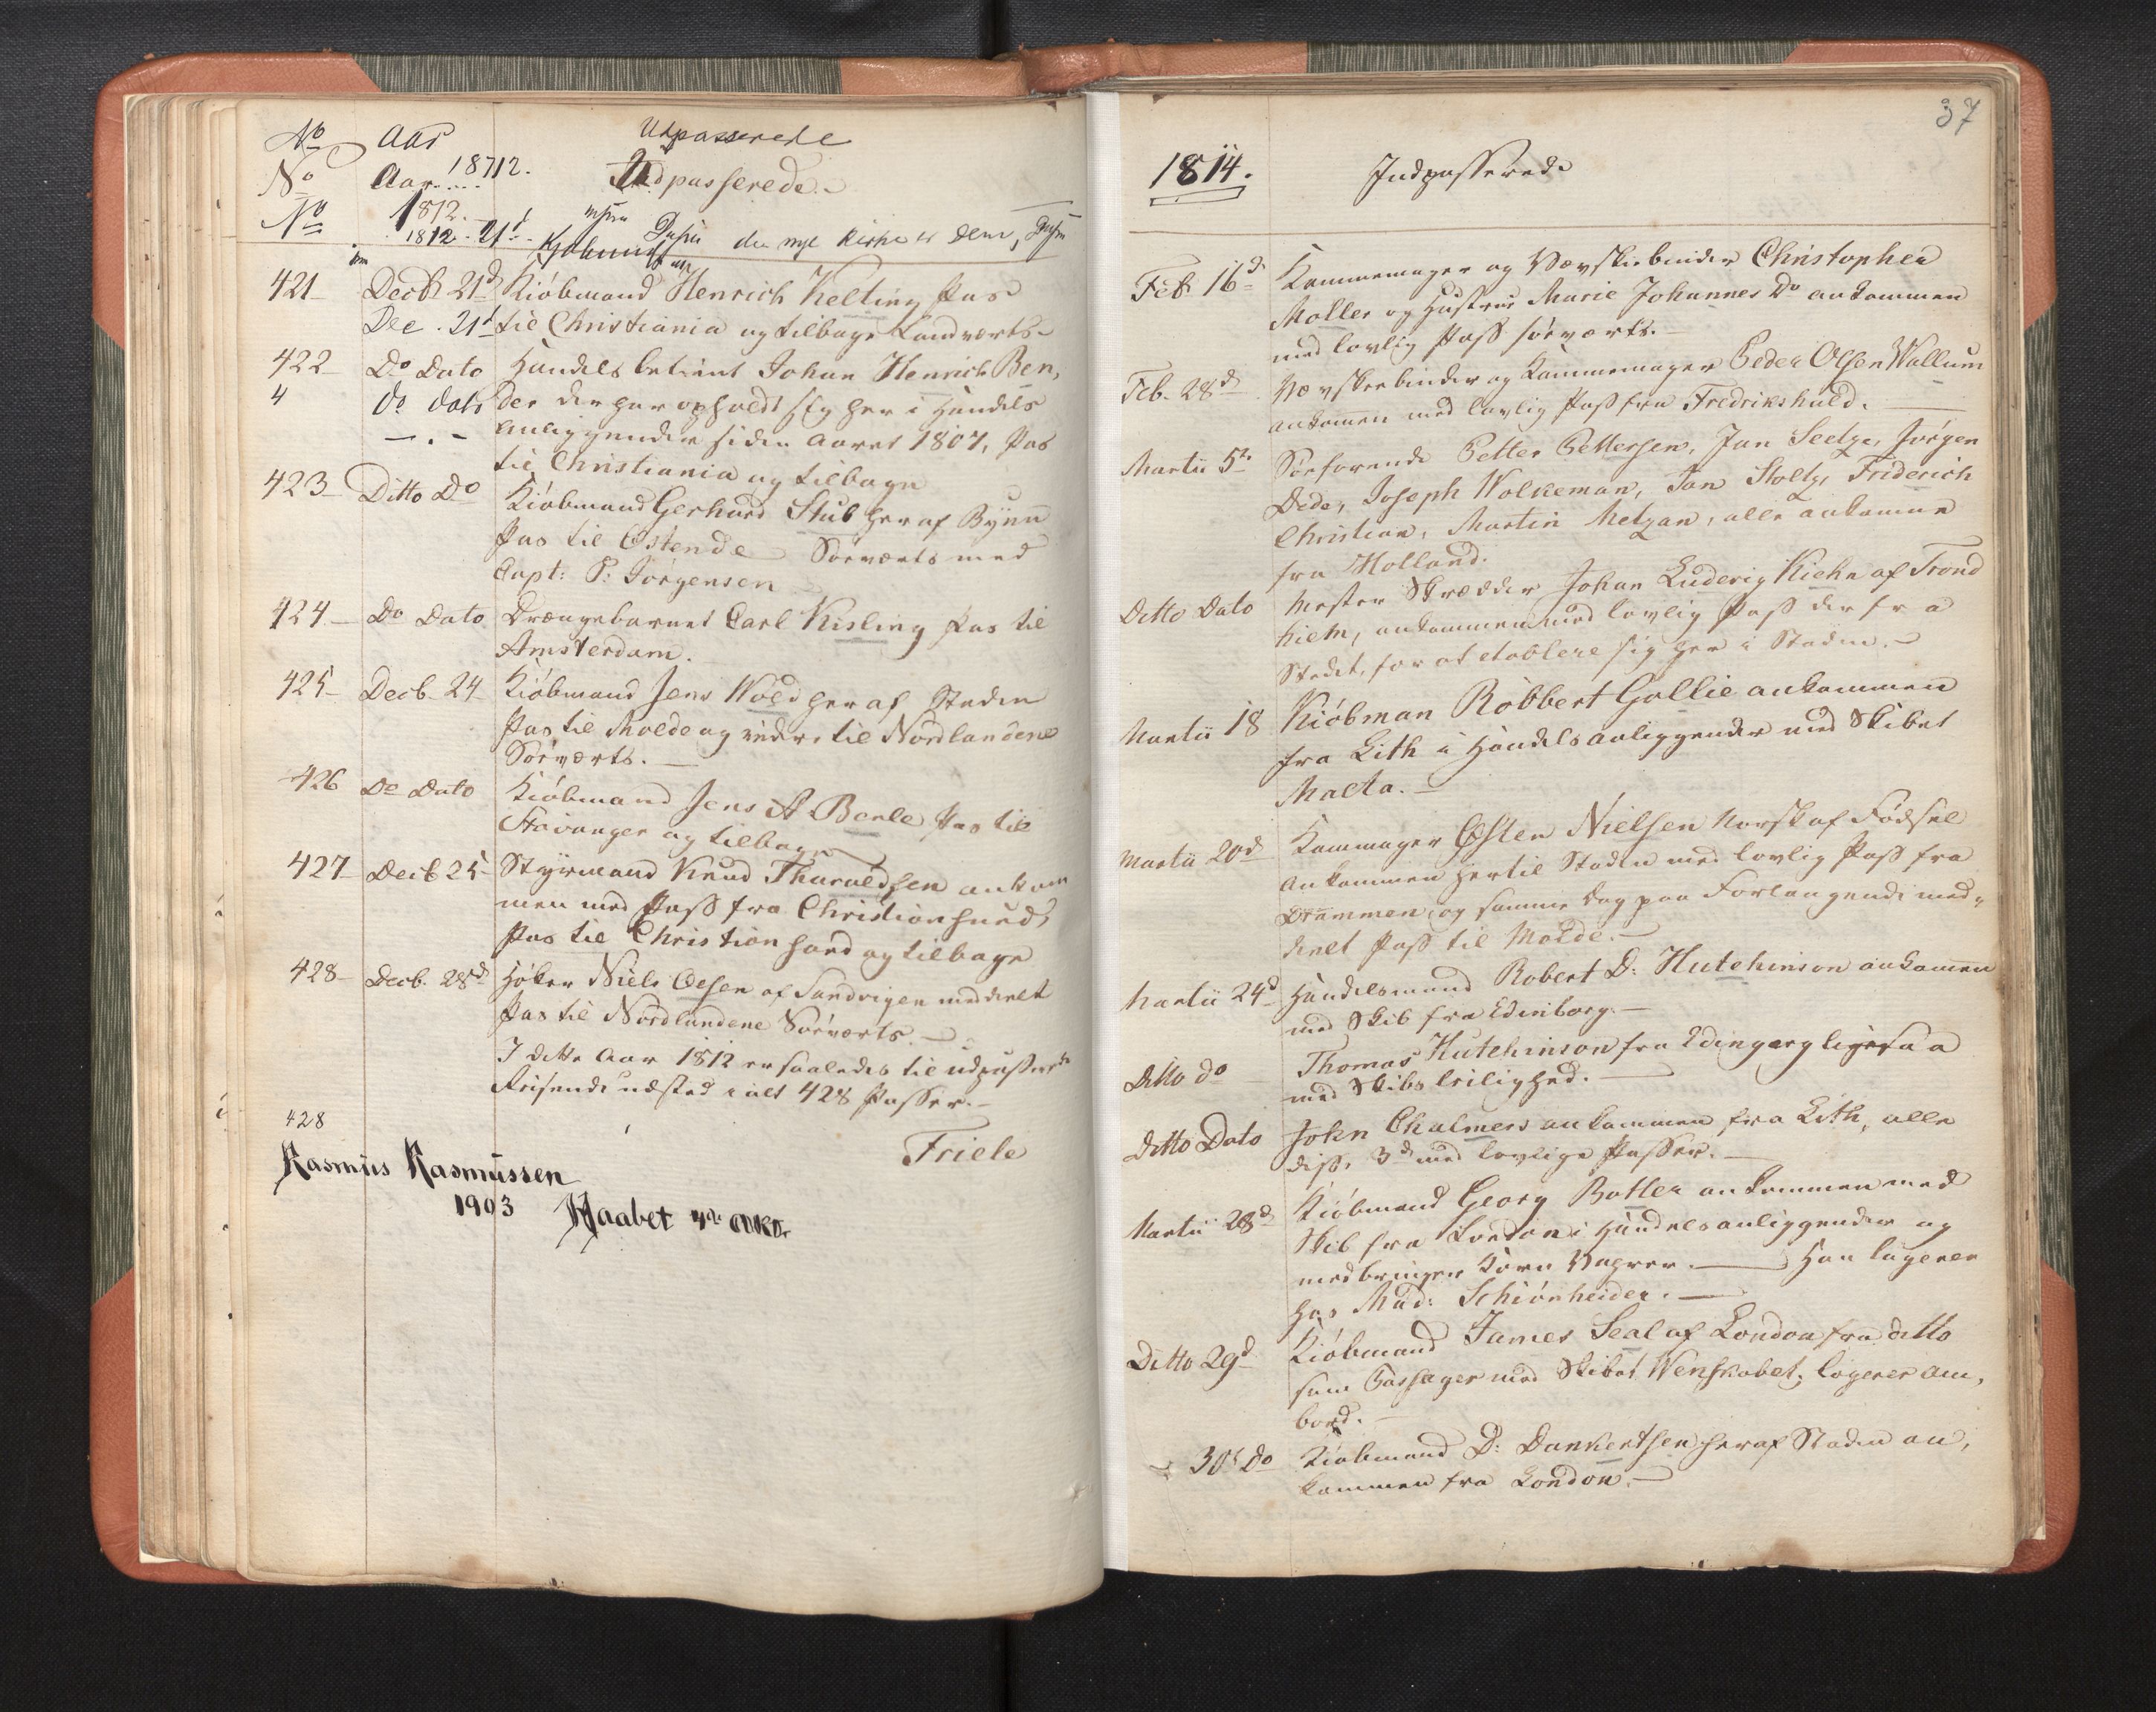 No Aar Udpasserede
No Aar.... 18712. Udpasserede
No 1812.
1812. 21d den nye Kirke er Dem,
421 Decb 21d Kiöbmand Henrich Kelting Pas
Dec. 21d til Christiania og tilbage Landværts
422 Do Dato Handels betient Johan Henrich Ben,
4 do dato der der har opholdt sig her i Handels
anliggender siden Aaret 1807, Pas
til Christiania og tilbage
423 Ditto Do Kiöbmand Gerhard Stub her af Byen
Pas til Ostende Söeværts med
Capt: P: Jörgensen
424 Do Dato Drængebarnet Carl Kisling Pas til
Amsterdam.
425 Decb. 24 Kiöbmand Jens Wold her af Staden
Pas til Molde og videre til Nordlandene
Söeværts.
426 Do Dato Kiöbmand Jens A Berle Pas til
Stavanger og tilbage
427 Decb 25 Styrmand Knud Tharaldsen ankom
men med Pass fra Christiansund,
Pas til Christiansand og tilbage
428 Decb. 28d Höker Niels Olsen af Sandvigen meddeelt
Pas til Nordlandene Söeværts.
I dette Aar 1812 er saaledes til udpasserede
Reisende udsted i alt 428 Passer.
428
Friele
Rasmus Rasmussen
1903 Haabet
37
1814. Indpasserede
Feb 16d Kammemager og Vævskebinder Christopher
Møller og Hustrue Marie Johannes Do ankommen
med lovlig Pass söeværts.
Feb. 28d Vævskeebinder og Kammemager Peder Olsen Wallum
ankommen med lovlig Pass fra Fredrikshald.
Martii 5te Söefarende Petter Pettersen, Jan Seetze, Jörgen
Dede, Joseph Wolkeman, Jan Stoltz, Friderich
Christian, Martin Metzan, alle ankomne
fra Holland.
Ditto Dato Mester Skrædder Johan Luderig Kiehn af Trond
hiem, ankommen med lovlig Pass der fra
Stedet, for at etablere sig her i Staden.
Martii 18 Kiöbman Robbert Gollie ankommen
fra Lith i Handels anliggender med Skibet
Malta.
Martii 20d Kammager Østen Nielsen Norsk af Födsel
ankommen hertil Staden med lovlig Pass fra
Drammen, og samme Dag paa Forlangende med,
deelt Pass til Molde.
Martii 24d Handelsmand Robert D: Hutchinson ankommen
med Skib fra Edinborg.
Ditto do Thomas Hutchinson fra Edingarg ligesaa
med Skibs leilighed.
Ditto Dato John Chalmers ankommen fra Lith, alle
disse 3de med lovlige Passer.
Martii 28d Kiöbmand Georg Botler ankommen med
Skib fra London i Handels anliggender og
medbringer Korn Vahrer. Han logerer
hos Mad: Schiönheider.
Ditto 29d Kiöbmand James Seal af London fra ditto
som Passager med Skibet Wenskabet, logerer om,
bord.
30t Do Kiöbmand D: Dankertsen her af Staden an,
kommen fra London.